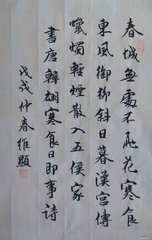 春城無處不飛花寒食
東風御柳斜日暮漢宮傳
蠟燭輕煙散入五侯家
書唐韓翃寒食日即事詩
戊戌仲春維顯